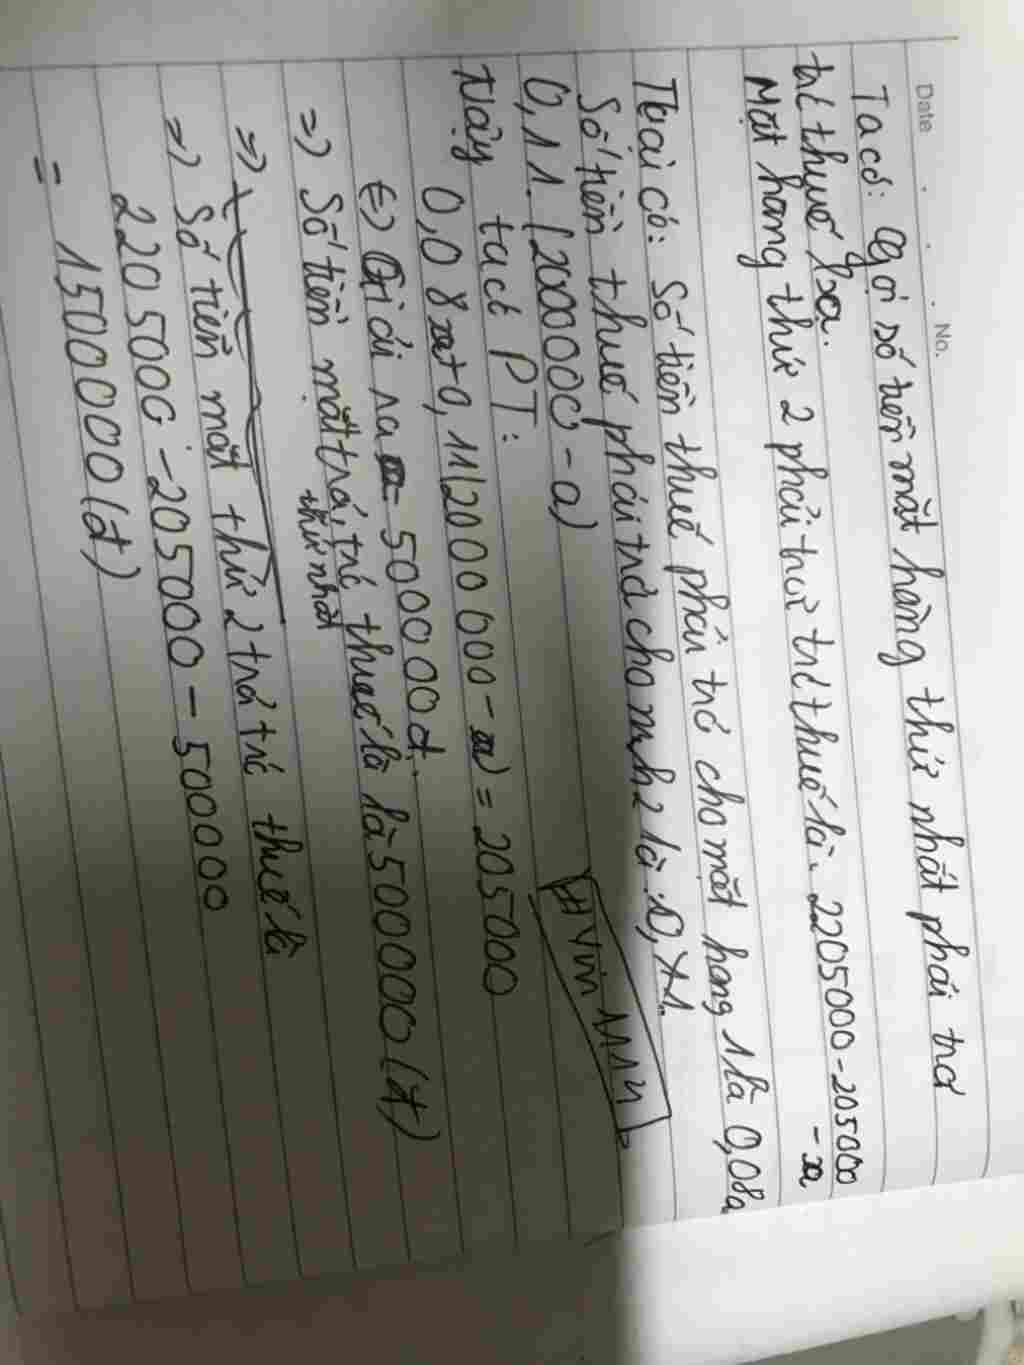 Date No.
Ta có: Gọi số tiền mặt hàng thứ nhất phải trả
trừ thuế là a.
Mặt hàng thứ 2 phải thứ trừ thuế là: 2205000-205000
-a
Ta lại có: Số tiền thuế phải trả cho mặt hàng 1 là 0,08a
Số tiền thuế phải trả cho mh2 là: 0,11.
0,11.(2000000-a)
Vậy ta có PT:
0,08a+0,11(2000000-a)=205000
⇔ Giải ra a=500000đ.
⇒ Số tiền mặt trả trừ thuế là là 500000(đ)
thứ nhất
⇒
⇒ Số tiền mặt thứ 2 trả trừ thuế là
2205000-205000-500000
= 1500000(đ)